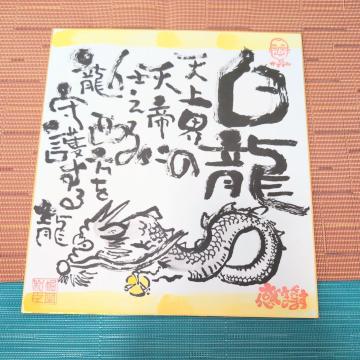 白龍
天上界の
天帝に
仕える
龍
守護する龍
感謝